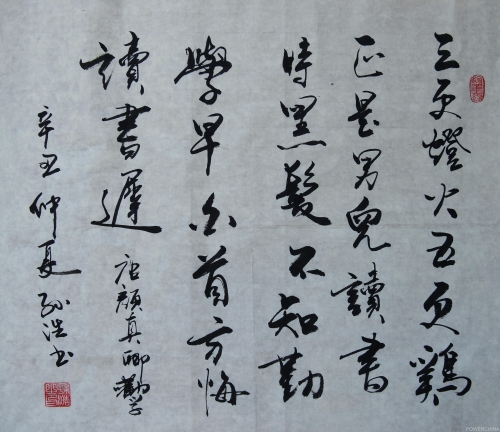 三更燈火五更鷄
正是男兒讀書
時黑髮不知勤
學早白首方悔
讀書遲
唐顏真卿勸學
辛丑仲夏孫浩書
POWERCHINA